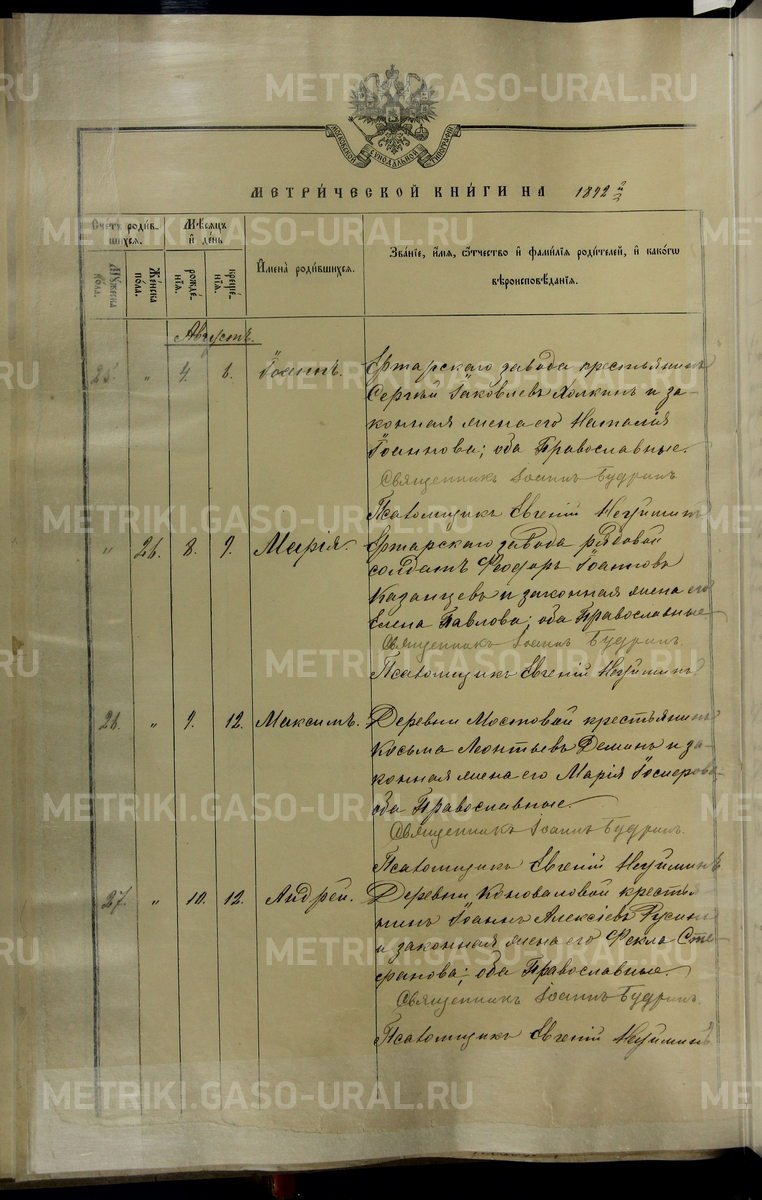 МОСКОВСКОЙ СѴНОДАЛЬНОЙ ТИПОГРАФІИ
МЕТРИ́ЧЕСКОЙ КНИ́ГИ НА 1892 г.
Счетъ роди́вшихся.
Мѣ́сяцъ и҆ де́нь
И҆мена̀ роди́вшихся.
Зва́нїе, и҆́мя, ѻ҆́тчество и҆ фами́лїя роди́телей, и҆ како́гѡ вѣроисповѣ́данїя.
Му́жеска по́ла.
Же́нска по́ла.
рожде́нїя.
креще́нїя.
Августъ.
25. " 4. 6. Іоаннъ. Юртарскаго завода крестьянинъ
Сергѣй Іаковлевъ Холкинъ и за-
конная жена его Наталія
Іоаннова; оба Православные.
Священникъ Іоаннъ Будринъ
Псаломщикъ Евгеній Неуйминъ
" 26. 8. 9. Марія. завода рядовой
солдатъ Ѳеодоръ Іоанновъ
Казанцевъ и законная жена его
Елена Павлова; оба Православные
Священникъ Іоаннъ Будринъ.
Псаломщикъ Евгеній Неуйминъ
26. " 9. 12. Максимъ. Деревни Мостовой крестьянинъ
Косьма Леонтьевъ Деминъ и за-
конная жена его Марія
оба Православные.
Священникъ Іоаннъ Будринъ.
Псаломщикъ Евгеній Неуйминъ
27. " 10. 12. Андрей. Деревни Коноваловой крестья-
нинъ Іоаннъ Алексіевъ Русинъ
и законная жена его Ѳекла Сте-
фанова; оба Православные.
Священникъ Іоаннъ Будринъ.
Псаломщикъ Евгеній Неуйминъ
METRIKI.GASO-URAL.RU